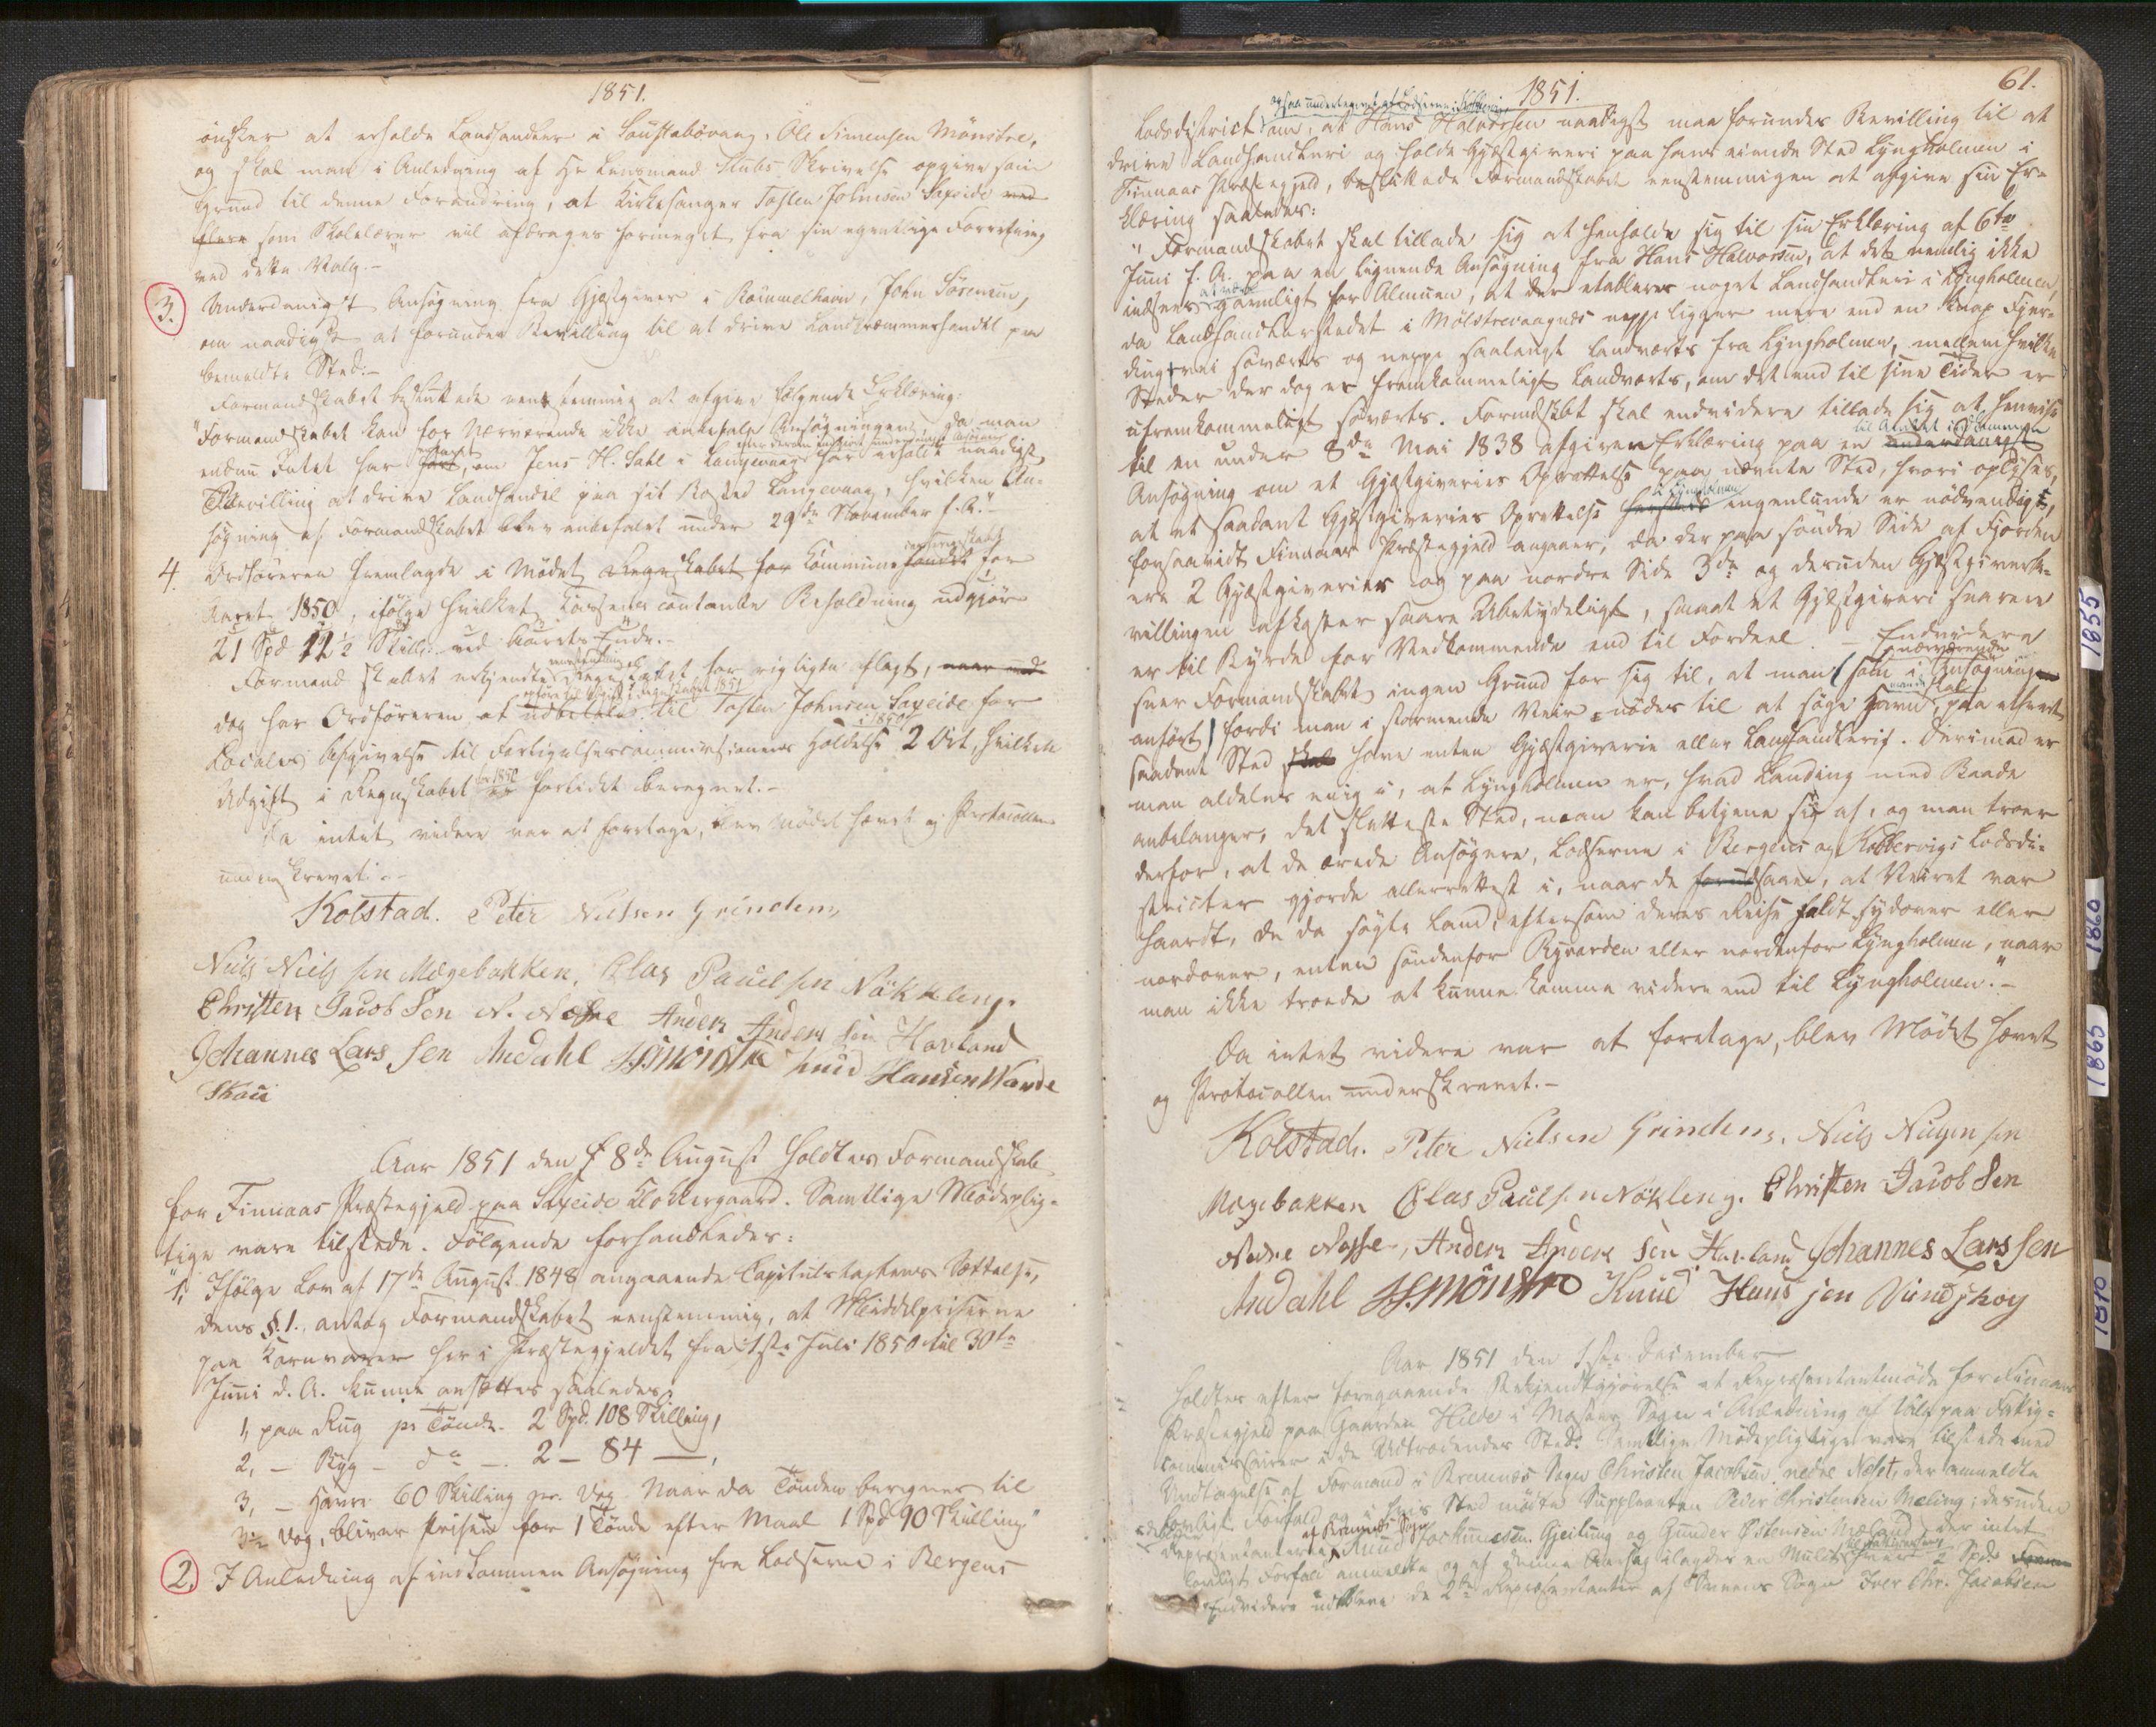 1851.
ønsker at erholde Landhandler i Loustabövaag, Ole Simensen Mönstre,
og skal man i Anledning af Hr Lensmand Stubs Skrivelse opgive som
Grund til denne Forandring, at Kirkesanger Tosten Johnsen Sayeide ved
flere som Skolelærer vil afdrages formeget fra sin egentlige Forretning
ved dette Valg.-"
3. Underdanigst Ansögning fra Gjæstgiver i Römmelhavn, John Sörensen,
om naadigst at forundes Bevilling til at drive Landkræmmerhandel paa
bemeldte Sted:-
Formandskabet besluttede eenstemmig at afgive følgende Erklæring:
"Formandskabet kan for Nærværende ikke anbefale Ansøgningen, da man
endnu Intet har hørt, om Jens H. Dahl i Langevaag paa derom indgivne underdanigst Ansøgning har erholdt naadigst
Bevilling at drive Landhandel paa sit Bosted Langevaag, hvilken An-
søgning af Formandskabet blev anbefalet under 29de November f. A."-
4. Ordføreren fremlagde i Mødet Regnskabet for Kommunefondet for
Aaret 1850, ifølge hvilket Kassens contante Beholdning udgjør
21 Spd 22½ Skill: ved Aarets Ende.-
Formandskabet erkjendte Regnskabet for rigtigen aflagt,
dog har Ordføreren at udbetale til Tosten Johnsen Sayeide for
Locales Afgivelse til Forligelsescommissionens Holdelse i 1850 2 Ort, hvilken
Udgift i Regnskabet for 1850 er forbidt beregnet.-
Da intet videre var at foretage, blev Mödet hævet og Protocollen
underskrevet.-
Kolstad. Peter Nielsen Grindem,
Niels Nielsen Mögebakken, Clas Paulsen Nökling.
Christen Jacobsen N. Næsse Anders Andersen Havland
Johannes Larssen Andahl HSMönstre Knud Hansen Vande
Skou
Aar 1851 den 8de August holdtes Formandskab
for Finnaas Præstegjeld paa Sayeide Klokkergaard. Samtlige Mødeplig-
tige vare tilstede. Følgende forhandledes:
"1, Ifølge Lov af 17de August 1848 angaaende Capitulstaxtens Sættelse,
dens §.1. antog Formandskabet eenstemmig, at Middelpriserne
paa Kornvarer her i Præstegjeldet fra 1ste Juli 1850 til 30te
Juni d. A. kunne ansættes saaledes:
1, paa Rug pr Tønde 2 Spd. 108 Skilling,
2, - Byg - do -. 2 - 84 —,
3, - Havre 60 Skilling pr. Vog. Naar da Tønden beregnes til
3de Vog, bliver Prisen for 1 Tønde efter Maal 1 Spd 90 Skilling"
2. I Anledning af indkommen Ansøgning fra Lodserne i Bergens
61.
1851.
ogsaa undertegnet af Lodserne i Kobbervig
Lodsdistrict om, at Hans Halvorsen naadigst maa forundes Bevilling til at
drive Landhandleri og holde Gjæstgiveri paa hans eiende Sted Lyngholmen i
Finnaas Præstegjeld, besluttede Formandskabet eenstemmigen at afgive sin Er-
klæring saaledes:
"Formandskabet skal tillade sig at henholde sig til sin Erklæring af 6te
Juni f. A. paa en lignende Ansøgning fra Hans Halvorsen, at det nemlig ikke
indsees at være gavnligt for Almuen, at der etableres noget Landhandleri i Lyngholmen,
da Landhandlerstedet i Mölstrevaagnæs neppe ligger mere end en knap Fjer-
dingvei søværts og neppe saalangt landværts fra Lyngholmen, mellem hvilke
Steder der dog er fremkommeligt Landværts, om det end til sine Tider er
ufremkommeligt søværts. Formdskbt skal endvidere tillade sig at henvise
til en under 8de Mai 1838 afgiven Erklæring paa en til Amtet indkommen underdanigst
Ansøgning om et Gjæstgiveries Oprettelse paa nævnte Sted, hvori oplyses,
at et saadant Gjæstgiveries Oprettelse i Lyngholmen ingenlunde er nødvendigt,
forsaavidt Finnaas Præstegjeld angaaer, da der paa søndre Side af Fjorden
ere 2 Gjæstgiverier og paa nordre Side 3de og desuden Gjæstgiverbe-
villingen afkaster saare Ubetydeligt, saa at et Gjæstgiveri snarere
er til Byrde for Vedkommende end til Fordeel. - Endvidere
seer Formandskabet ingen Grund for sig til, at man (som i nærværende Ansøgning
anført) fordi man i stormende Veir nødes til at søge Havn, paa ethvert
saadant Sted skal have enten Gjæstgiverie eller Landhandleri. Derimod er
man aldeles enig i, at Lyngholmen er, hvad Landing med Baade
anbelanger, det sletteste Sted, man kan betjene sig af, og man troer
derfor, at de ærede Ansøgere, Lodserne i Bergens og Kobbervigs Lodsdi-
stricter gjorde allerrettest i, naar de forudsaae, at Veiret var
haardt, de da søgte Land, eftersom deres Reise faldt sydover eller
nordover, enten søndenfor Ryvarden eller nordenfor Lyngholmen, naar
man ikke troede at kunne komme videre end til Lyngholmen."-
Da intet videre var at foretage, blev Mødet hævet
og Protocollen underskrevet.-
Kolstad. Peter Nielsen Grindem, Niels Nielsen
Mögebakken Clas Paulsen Nökling. Christen Jacobsen
Nedre Næsse, Anders Andersen Havland Johannes Larssen
Andahl HSMönstre Knud Hanssen Vindskoy
Aar 1851 den 1ste December
holdtes efter foregaaende Bekjendtgjørelse et Repræsentantmøde for Finnaas
Præstegjeld paa Gaarden Hilde i Moster Sogn i Anledning af Valg paa Fattig-
commissairer i de Udtrædendes Sted. Samtlige Mødepligtige vare tilstede med
Undtagelse af Formand i Bremnæs Sogn Christen Jacobsen nedre Næset, der anmeldte
lovligt Forfald og i hvis Sted mødte Suppleanten Peder Christensen Meling; desuden
Repræsentanterne af Bremnæs Sogn Knud Torkildsen Gjeitung og Gunder Østensen Mæland, der intet
lovligt Forfald anmeldte og af denne Aarsag ilagdes en Mulct hver 2 Spd.
Endvidere udebleve de 2de Repræsentanter af Finnaas Sogn Iver Chr. Jacobsen
1855
1860
1865
1870